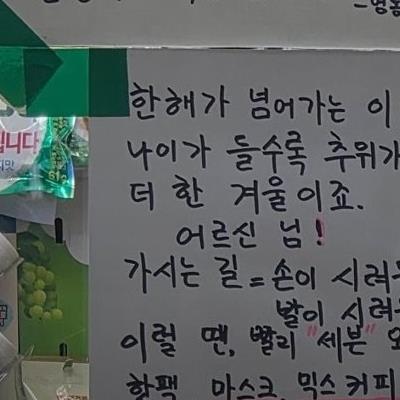 -영동
한해가 넘어가는 이
나이가 들수록 추위가
더 한 겨울이죠.
어르신 님!
가시는 길 = 손이 시려우
발이 시려우
이럴 땐, 빨리 "세븐" 으
핫팩 마스크, 믹스커피
입니다